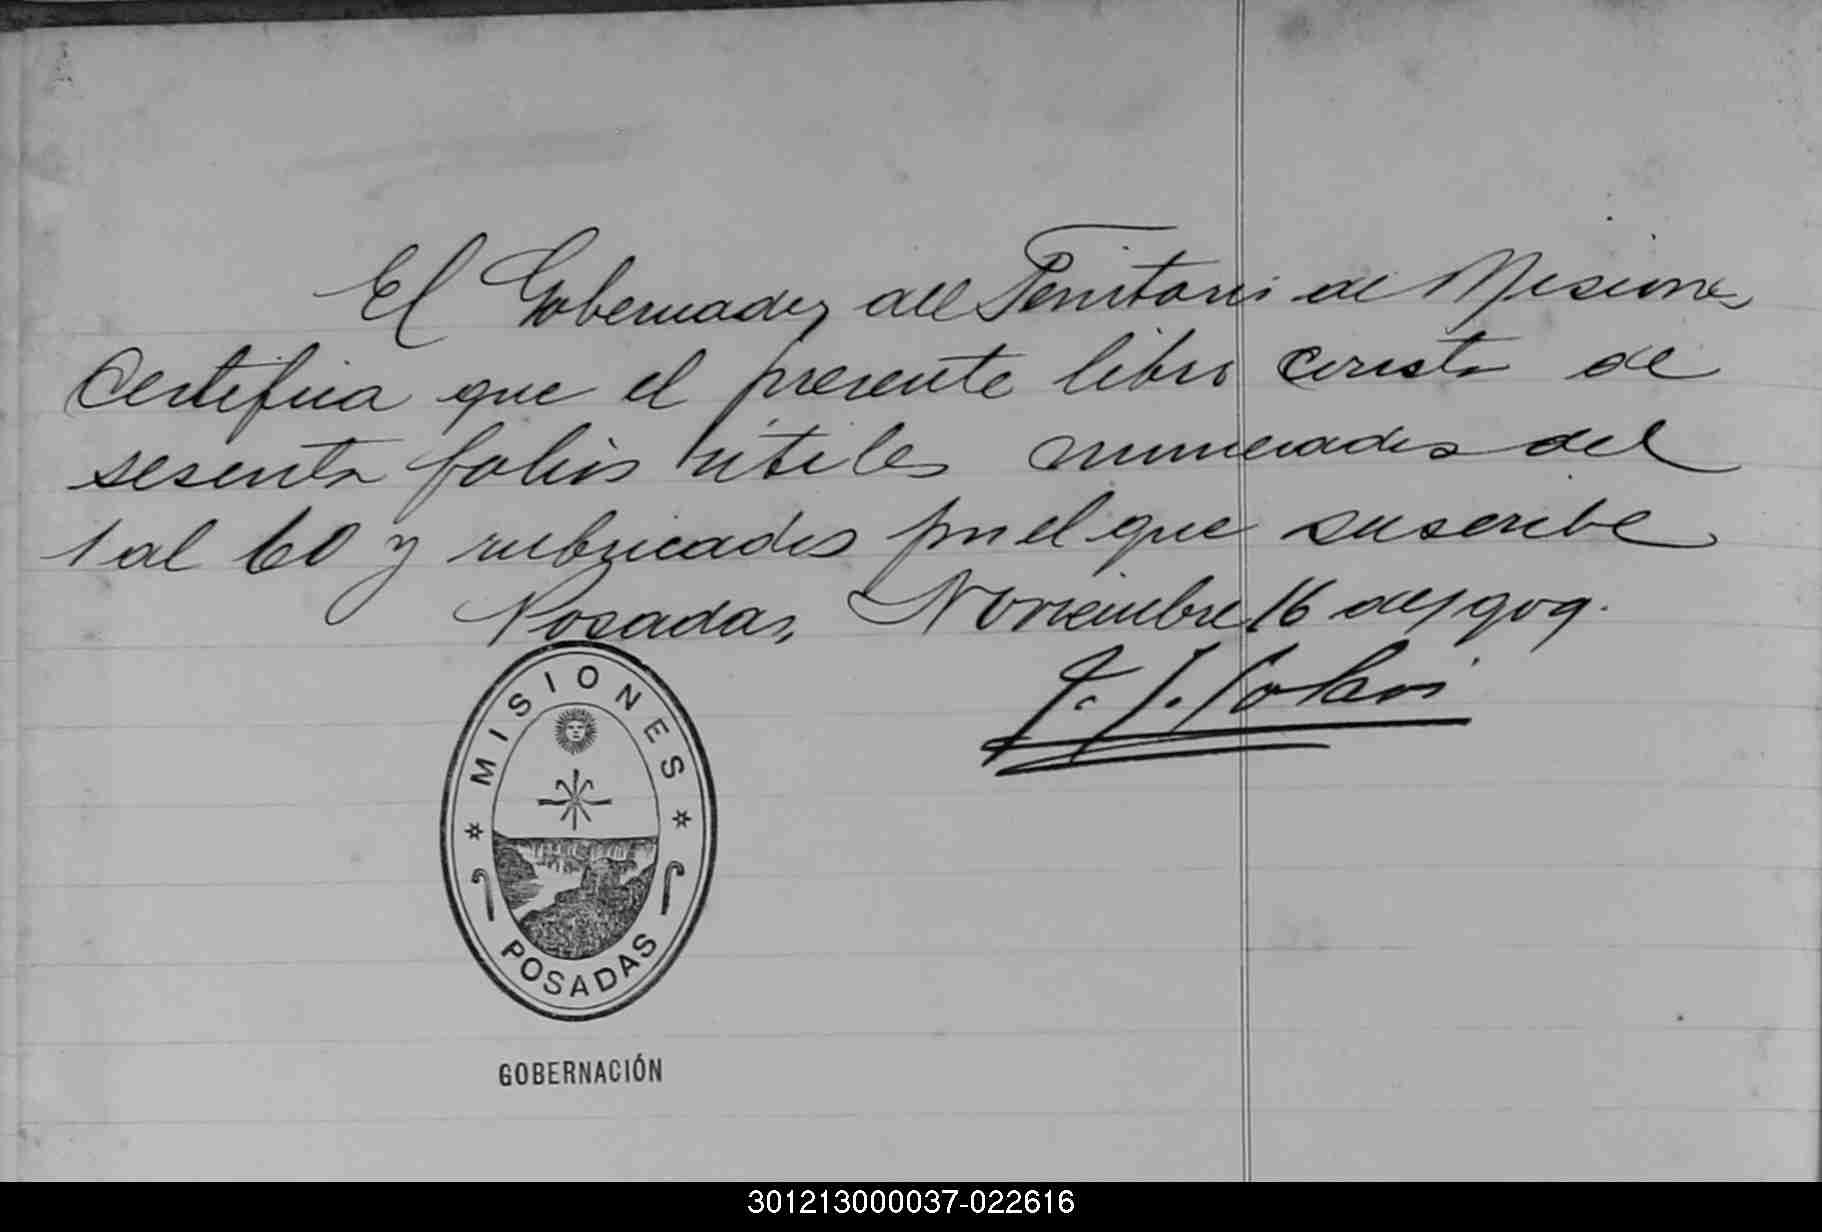 El Gobernador del Territorio de Misiones
Certifica que el presente libro consta de
sesenta folios útiles numerados del
1 al 60 y rubricados por el que suscribe
Posadas, Noviembre 16 de 1909.
MISIONES
POSADAS
GOBERNACIÓN
301213000037-022616